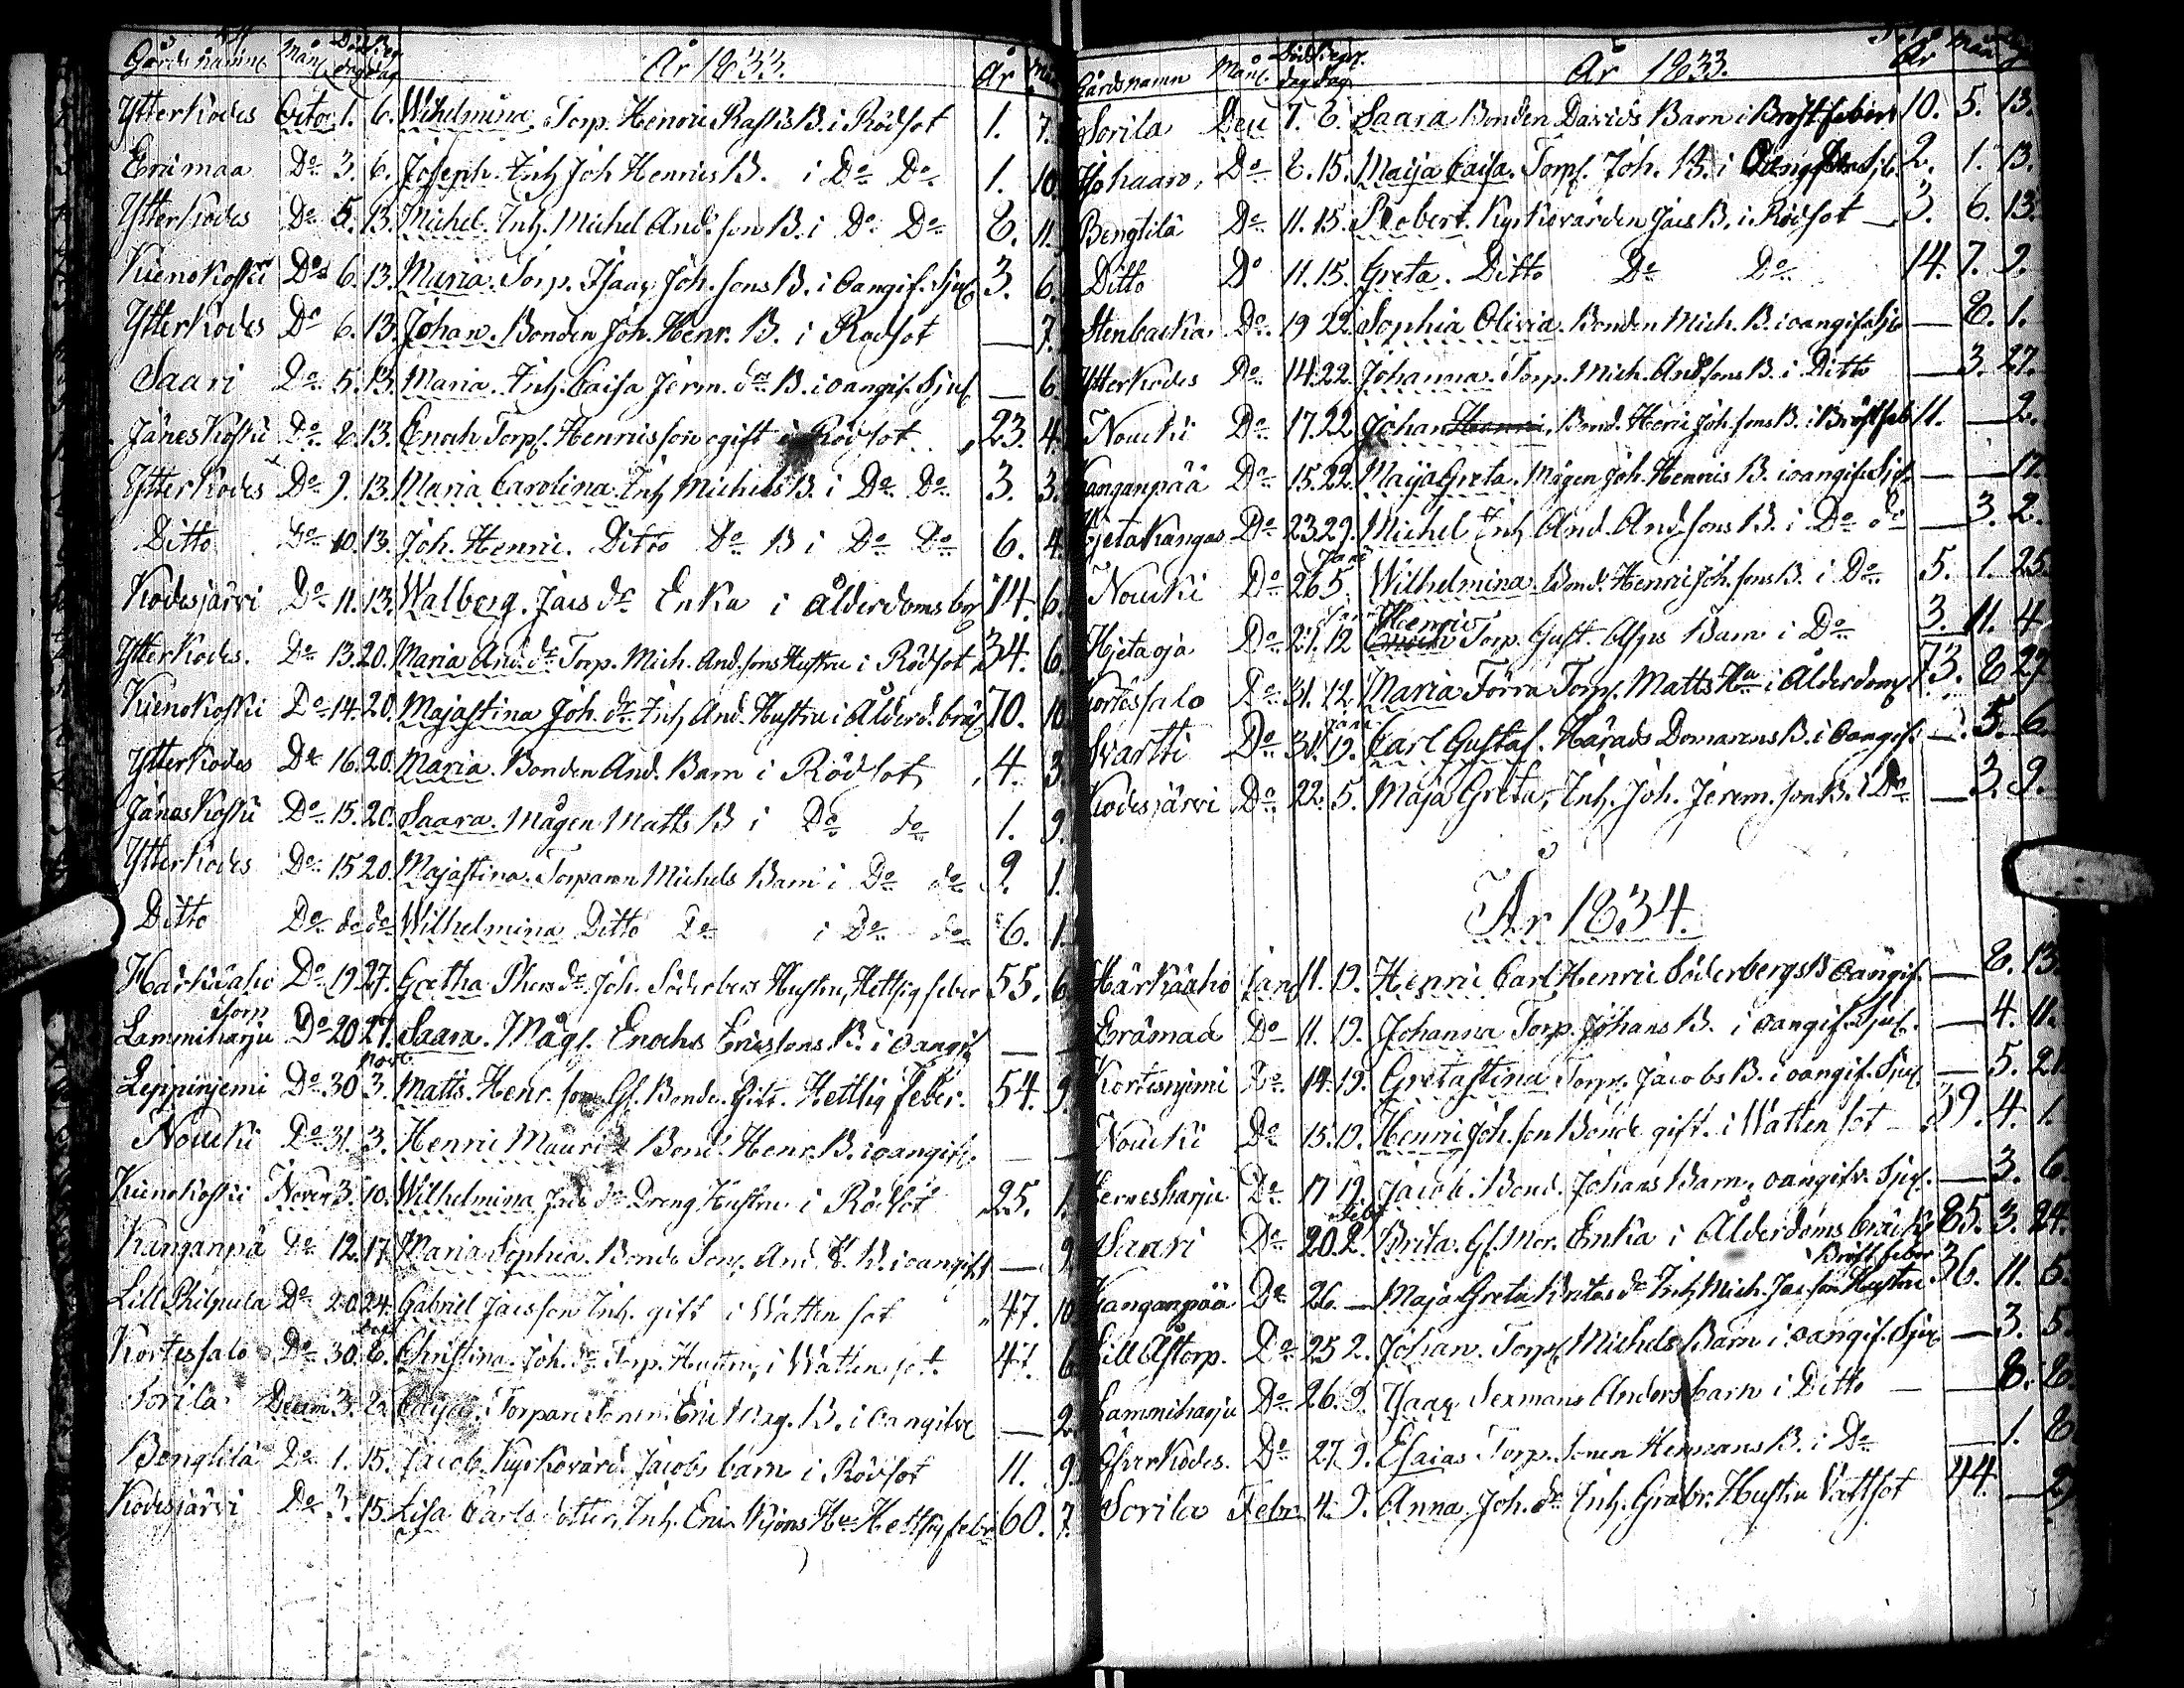 Gårds namne Mån Död dag Begr dag År 1833. År Mån
Ytterkodes Octo 1. 6. Wilhelmina. Torp. Henric B. i Rödsot 1. 7.
Erämaa Do 3. 6. Joseph. Inh Joh Henrics B. i Do Do 1. 10.
Ytterkodes Do 5. 13. Michel. Inh. Michel And. sons B. i Do Do 8. 11.
Kienokoski Do 6. 13. Maria. Torp. Isaac Joh. sons B. i oangif. Sjuk 3. 6.
Ytterkodes Do 6. 13. Johan. Bonden Joh. Henr. B. i Rödsot — 7.
Saari Do 5. 13. Maria. Inh. Caisa Jerm. dr B. i oangif. Sjuk — 6.
Jäneskoski Do 8. 13. Enoch Torp. Henrics son ogift i Rödsot 23. 4.
Ytterkodes Do 9. 13. Maria Carolina Inh Michels B. i Do Do 3. 3.
Ditto Do 10. 13. Joh. Henric. Ditto Do B i Do Do 6. 4.
Kodesjärvi Do 11. 13. Walborg. Jacs dr Enka i Ålderdoms br 74. 6.
Ytterkodes. Do 13. 20. Maria And. dr Torp. Mich. And. sons Hustru i Rödsot 34. 6.
Kienokoski Do 14. 20. Majastina Joh. dr Inh And. Hustru i Ålderd. bräk 70. 10.
Ytterkodes Do 16. 20. Maria. Bonden And. Barn i Rödsot 4. 3.
Jäneskoski Do 15. 20. Saara. Mågen Matts B i Do do 1. 9.
Ytterkodes Do 15 20. Majastina Torparen Michels Barn i Do do 9. 1.
Ditto Do do do Wilhelmina Ditto Do i Do do 6. 1.
Härkäaho Do 19 27. Gretha Phers dr Joh. Söderbers Hustru, Hettsig feber 55. 6.
Torp
Lammiharju Do 20 27. Saara. Måg. Enochs Ericssons B. i oangif — —
Nov
Leppinjemi Do 30 3. Matts. Henr. son Gl. Bonde. Gift. Hettsig feber. 54. 9.
Noucki Do 31. 3. Henric Mauritz Bond. Henr. B. i oangif. — —
Kienokoski Novem 3. 10. Wilhelmina Jacs dr Dreng Hustru i Rödsot 25. 1.
Kanganpä Do 12. 17 Maria Sophia. Bonde Son. And. B. i oangif — 9.
Lill Philpula Do 20 24. Gabriel Jacsson Inh. gift i Watten sot 47. 10
Dec
Kortessalo Do 30. 8. Christina. Joh. dr Torp. Hustru, i Watten sot 47. 6
Sorila Decem 3. 8. Caisa. Torpare Sonen Eric B. i oangifve — 2.
Bengtilä Do 1. 15. Jacob. Kyrkovärd. Jacobs barn i Rödsot 11. 9.
Kodesjärvi Do 3. 15. Lisa Carls dotter, Inh. Eric Hu Hettsig feber 60. 7.
Gårdsnamn Mån. Död dag Begr. dag År 1833. År Mån
Sorila Dec 7. 8. Saara Bonden Davids Barn i Bröstfeber 10. 5. 13.
Do 8. 15. Maija Caisa. Torp. Joh. B. i 2. 1. 13.
Bengtilä Do 11. 15. Robert. Kyrkovärden Jacs B. i Rödsot — 3. 6. 13.
Ditto Do 11. 15. Greta. Ditto Do Do 14. 7. 9.
Stenbacka Do 19 22. Sophia Olivia. Bonden Mich. B. i oangif. Sju — 8. 1.
Ytterkodes Do 14. 22. Johanna. Torp. Mich. And. sons B. i Ditto — 3. 27.
Noucki Do 17. 22. Johan Henric. Bond. Henric Joh. sons B. i Bröstfeb 11. — 2.
Kanganpää Do 15. 22. Maija Greta. Mågen Joh. Henrics B. i oangif. Sj. — — 17.
Hjetakangas Do 23 29. Michel Inh And. And. sons B. i Do do — 3. 2.
Janr
Noucki Do 26 5. Wilhelmina. Bond. Henric Joh. sons B. i Do 5. 1. 25.
Henric
Hjetaoja Do 21. 12 Enoch Torp. Gust. Barn i Do 3. 11. 4.
Kortessalo Do 31. 12. Maria Torp. Matts Hu i Ålderdom 73. 8. 27
Janr
Svartti Do 31. 19. Carl Gustaf. Härads Domarens B. i oangif. — 5. 6.
Kodesjärvi Do 22. 5. Maja Greta, Inh. Joh. Jerem. son B. i Do — 3. 9.
År 1834.
Härkäaho Janr 11. 19. Henric Carl Henric Söderbergs B oangif. — 8. 13.
Erämaa Do 11. 19. Johanna Torp. Johans B. i oangif. Sjuk. — 4. 11.
Kortisnjemi Do 14. 19. Gretastina Torp. Jacobs B. i oangif. Sjuk. — 5. 21.
Noucki Do 15. 19. Henric Joh. son Bonde gift. i Watten sot — 39. 4. 1.
Do 17 19. Jacob. Bond. Johans Barn, oangifv. Sjuk. — 3. 6.
Febr
Saari Do 20. 2. Brita. Gl. Mor. Enka i Ålderdoms bräck 85. 3. 24.
Bröstfeber
Kanganpää Do 26. — Maja Greta dr Inh Mich. Jacson Hustru 36. 11. 5.
Lill Åstorp. Do 25 2. Johan. Torp. Michels Barn i oangif. Sjuk — 3. 5.
Lammiharju Do 26. 9. Isaac Sexmans Anders barn i Ditto — — 8. 8.
Öfverkodes. Do 27. 9. Esaias Torp. Sonen Hermans B. i Do — 1. 8
Sorila Febr. 4. 9. Anna. Joh. dr Inh. Gabr. Hustru Vattsot 44. — 2